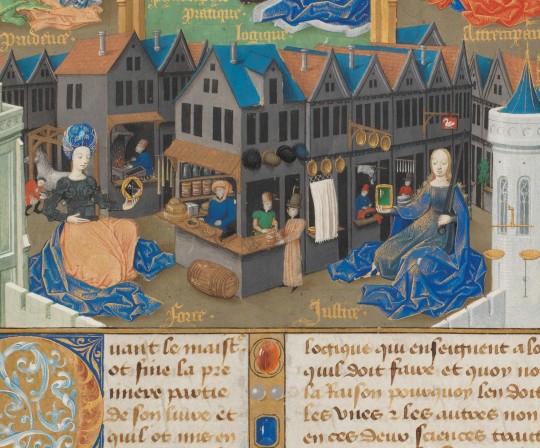 Pratique
Prudence
Logique
Attrempan
Force
Justice
uant le maist
ot fine la pre
miere partie
de son liure et
quil ot mis en
logique qui enseignent a lo
quil doit faire et quoy no
la Raison pourquoy len doit
les vnes ⁊ les autres non
en ces deux sciences trait